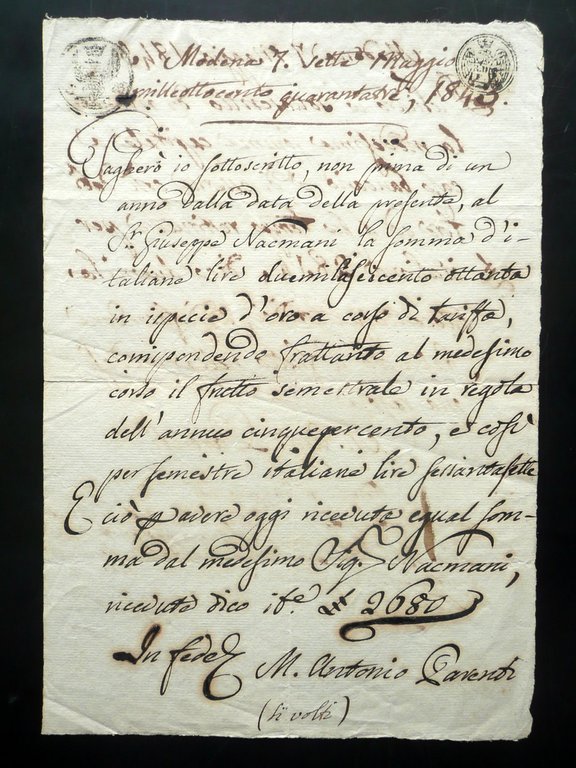 Modena 7. sette Maggio
milleottocento quarantatre, 1843.
Pagherò io sottoscritto, non prima di un
anno dalla data della presente, al
Sr. Giuseppe Nacmani la somma d'i-
taliane lire duemilaseicento ottanta
in ispecie d'oro a corso di tariffa,
corrispondendo frattanto al medesimo
corso il frutto semestrale in regola
dell'annuo cinquepercento, e così
per semestre italiane lire sessantasette
E ciò per avere oggi ricevuta egual som-
ma dal medesimo Sig. Nacmani,
ricevuta dico 2680
In fede M. Antonio Parenti
(si volti)